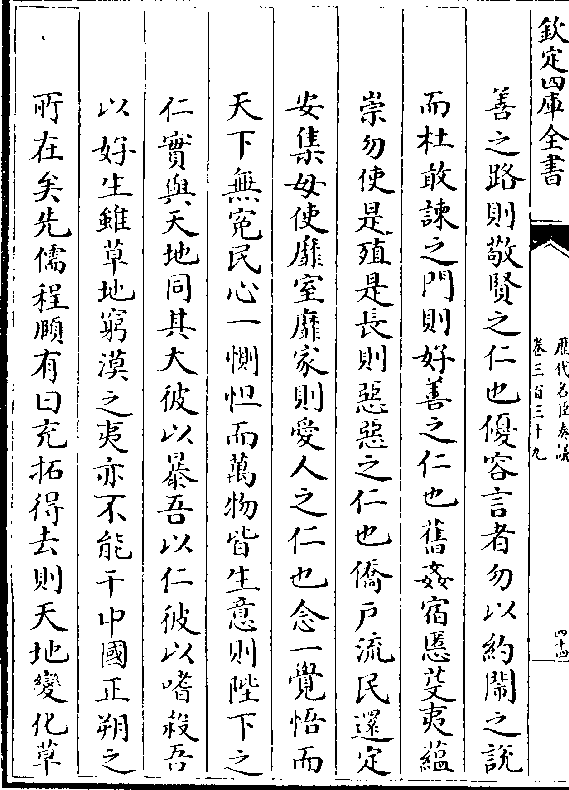 欽定四庫全書
歷代名臣奏議
卷三百三十九
四十四
善之路則敬賢之仁也優容言者勿以約鬧之說
而杜敢諫之門則好善之仁也舊姦宿慝芟夷蘊
崇勿使是殖是長則惡惡之仁也僑戶流民還定
安集毋使靡室靡家則愛人之仁也念一覺悟而
天下無冤民心一惻怛而萬物皆生意則陛下之
仁實與天地同其大彼以暴吾以仁彼以嗜殺吾
以好生雖草地窮漠之夷亦不能干中國正朔之
所在矣先儒程頤有曰充拓得去則天地變化草